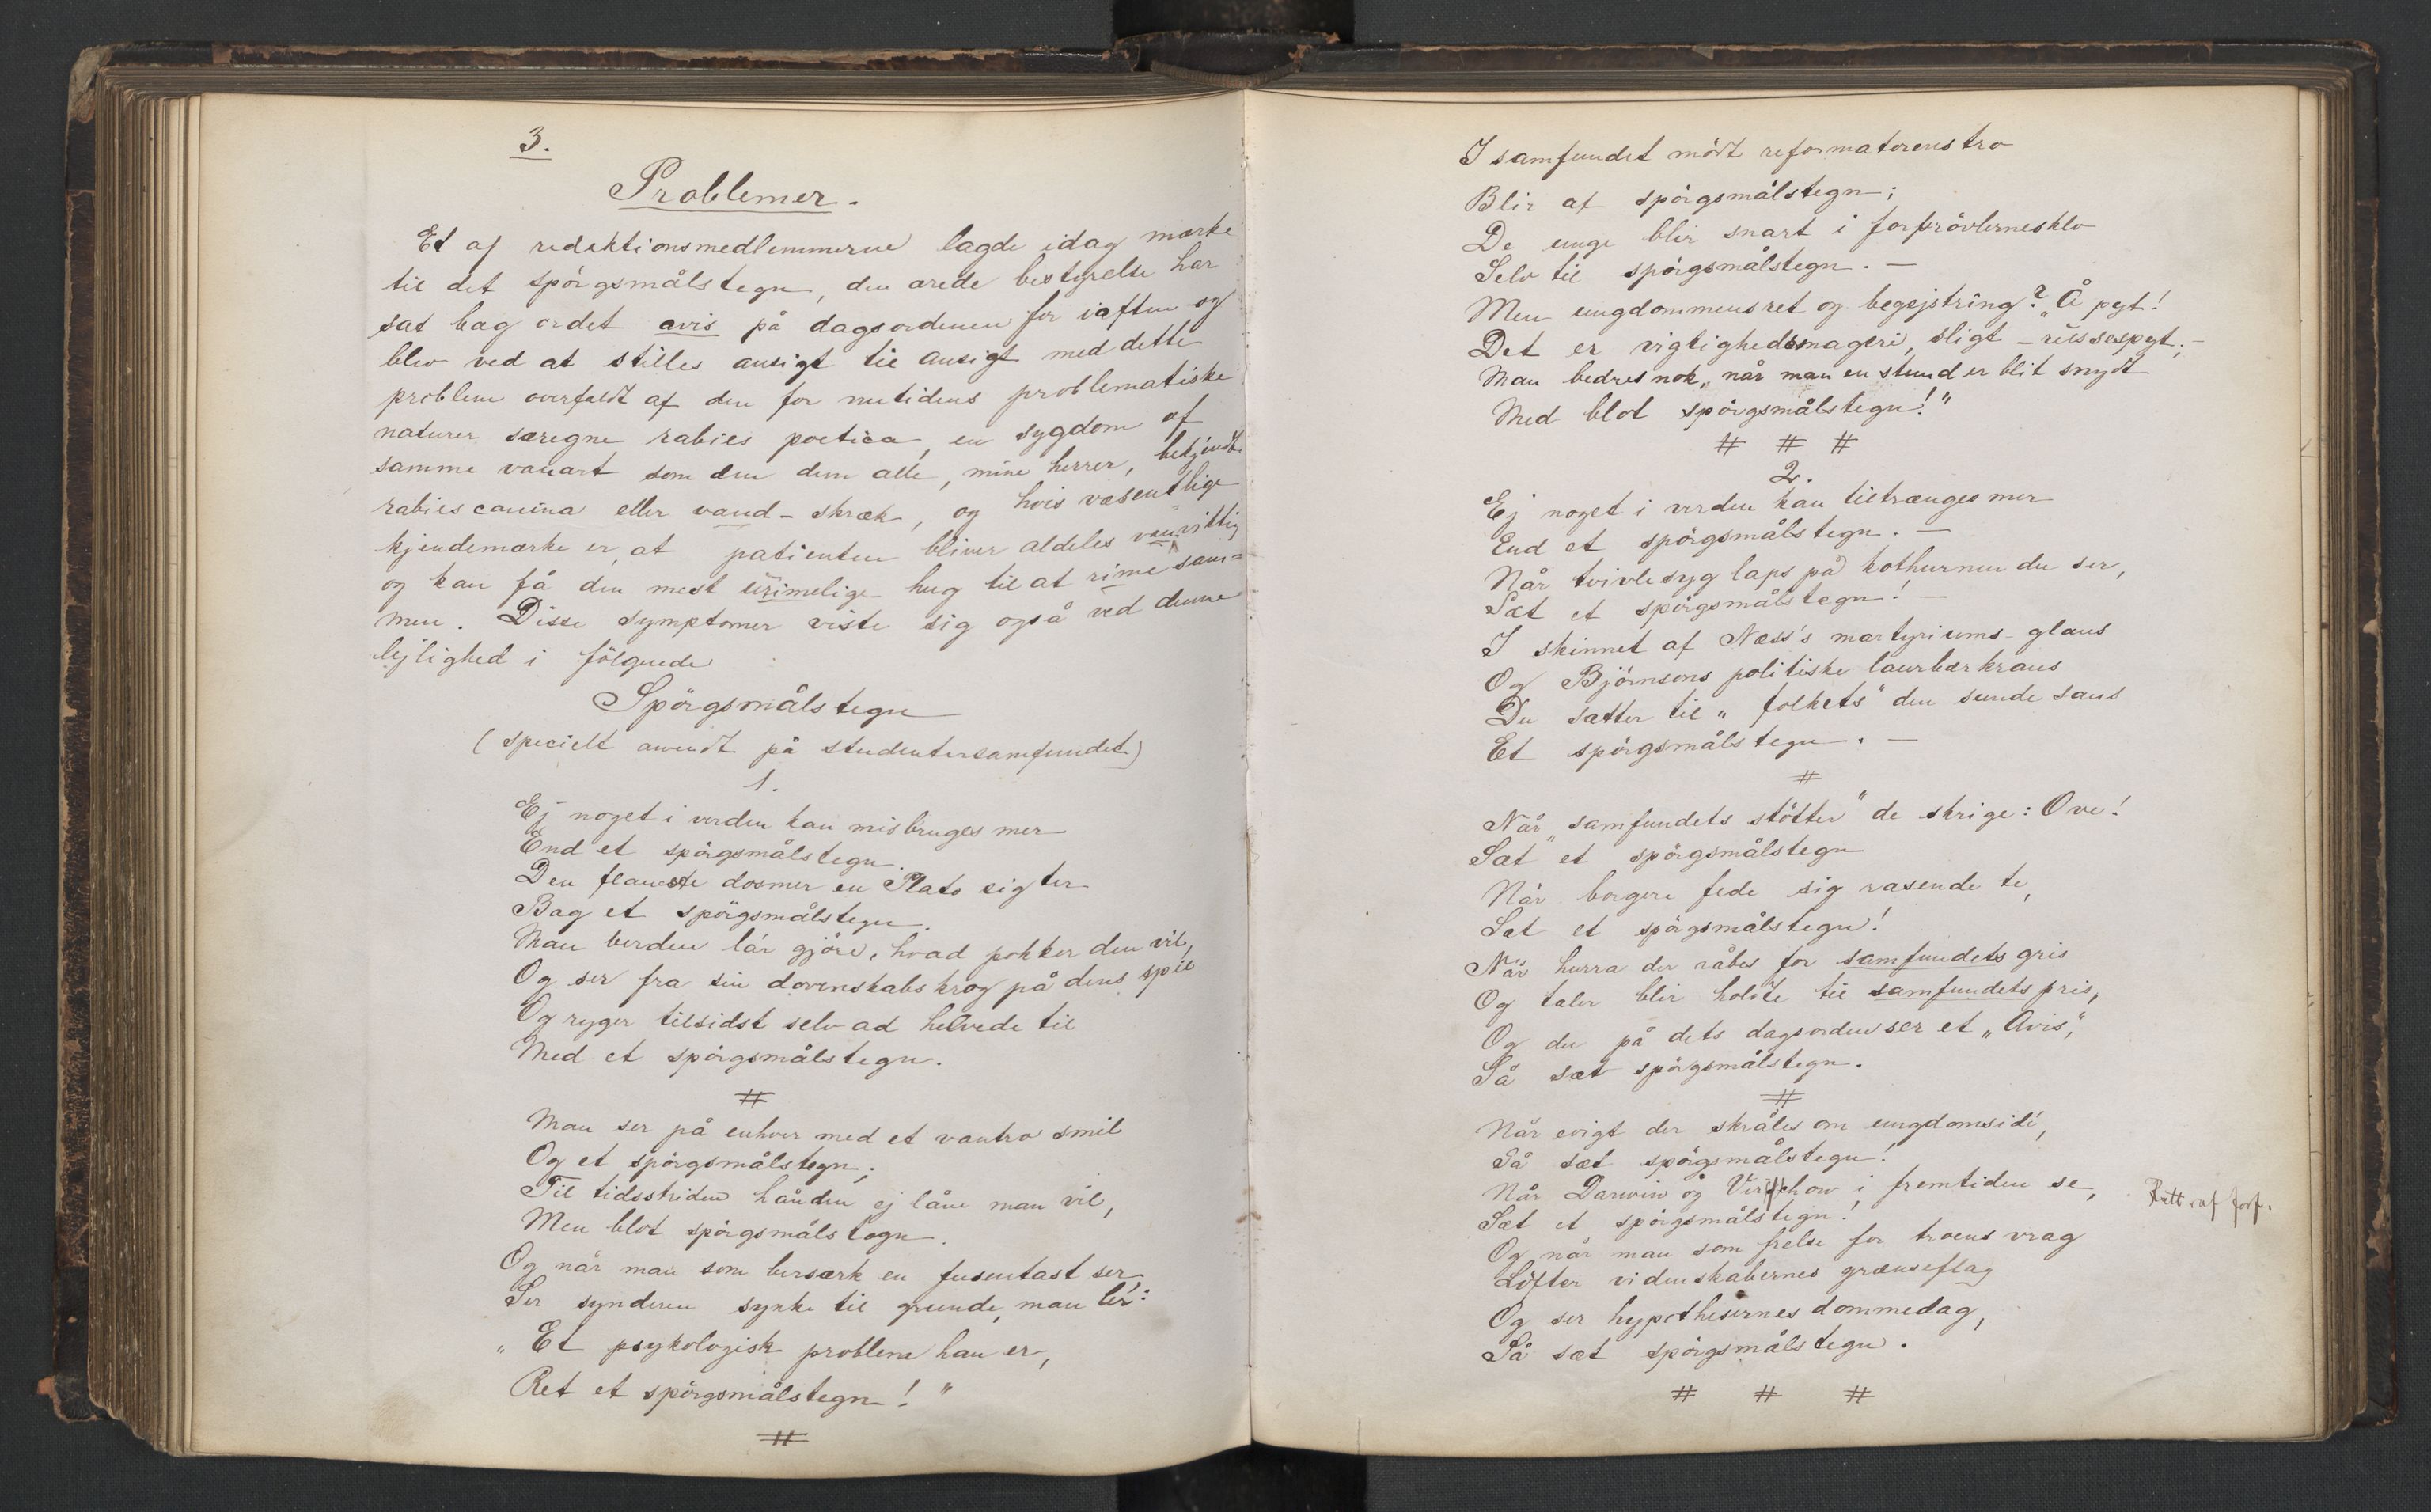 3.
Problemer.
Et af redaktionsmedlemmerne lagde idag mærke
til det spörgsmålstegn, den ærede bestyrelse har
sat bag ordet avis på dagsordenen for iaften og
blev ved at stilles ansigt til ansigt med dette
problem overfaldt af den for nutidens problematiske
naturer særegne rabies poetica, en sygdom af
samme vanart som den dem alle, mine herrer, bekjendte
rabies canina eller vand-skræk, og hvis væsentlige
kjendemærke er, at patienten bliver aldeles vanvittig
og kan få den mest urimelige hug til at rime sam=
men. Disse symptomer viste sig også ved denne
lejlighed i fölgende
Spörgsmålstegn
(specielt anvendt på studentersamfundet)
1.
Ej noget i verden kan misbruges mer
End et spörgsmålstegn.
Den flaueste dosmer en Plato sig ter
Bag et spörgsmålstegn.
Man verden lár gjöre, hvad pokker den vil,
Og ser fra sin dovenskabskrog på dens spil
Og ryger tilsidst selv ad helvede til
Med et spörgsmålstegn.
#
Man ser på enhver med et vantro smil
Og et spörgsmålstegn;
Til tidsstriden hånden ej låne man vil,
Men blot spörgsmålstegn.
Og når man som bersærk en fusentast ser,
Ser synderen synke til grunde, man lér:
"Et psykologisk problem han er,
Ret et spörgsmålstegn!"
#
I samfundet mödt reformatorens tro
Blir af spörgsmålstegn;
De unge blir snart i forprövlernes klo
Selv til spörgsmålstegn. —
Men ungdommens ret og begejstring? "Å pyt!
Det er vigtighedsmageri, sligt – russespyt; –
Man bedres nok, når man en stund er blit snydt
Med blot spörgsmålstegn!"
# # #
2.
Ej noget i verden kan tiltrænges mer
End et spörgsmålstegn. —
Når tvivlesyg laps på kothurnen du ser,
Sæt et spörgsmålstegn! —
I skinnet af Næss's martyriums-glans
Og Björnsons politiske laurbærkrans
Du sætter til "folkets" den sunde sans
Et spörgsmålstegn. —
#
Når "samfundets stötter" de skrige: Ove!
Sæt et spörgsmålstegn
Når borgere fede sig rasende te,
Sæt et spörgsmålstegn!
Når hurra der råbes for samfundets gris
Og taler blir holdte til samfundets pris,
Og du på dets dagsorden ser et "Avis",
Så sæt spörgsmålstegn.
#
Når evigt der skråles om ungdomsidé,
Så sæt spörgsmålstegn!
Når Darwin og Virchow i fremtiden se,
Sæt et spörgsmålstegn!
Rett. af forf.
Og når man som frelse for troens vrag
Löfter videnskabernes grænseflag
Og ser hypothesernes dommedag,
Så sæt spörgsmålstegn.
# # #